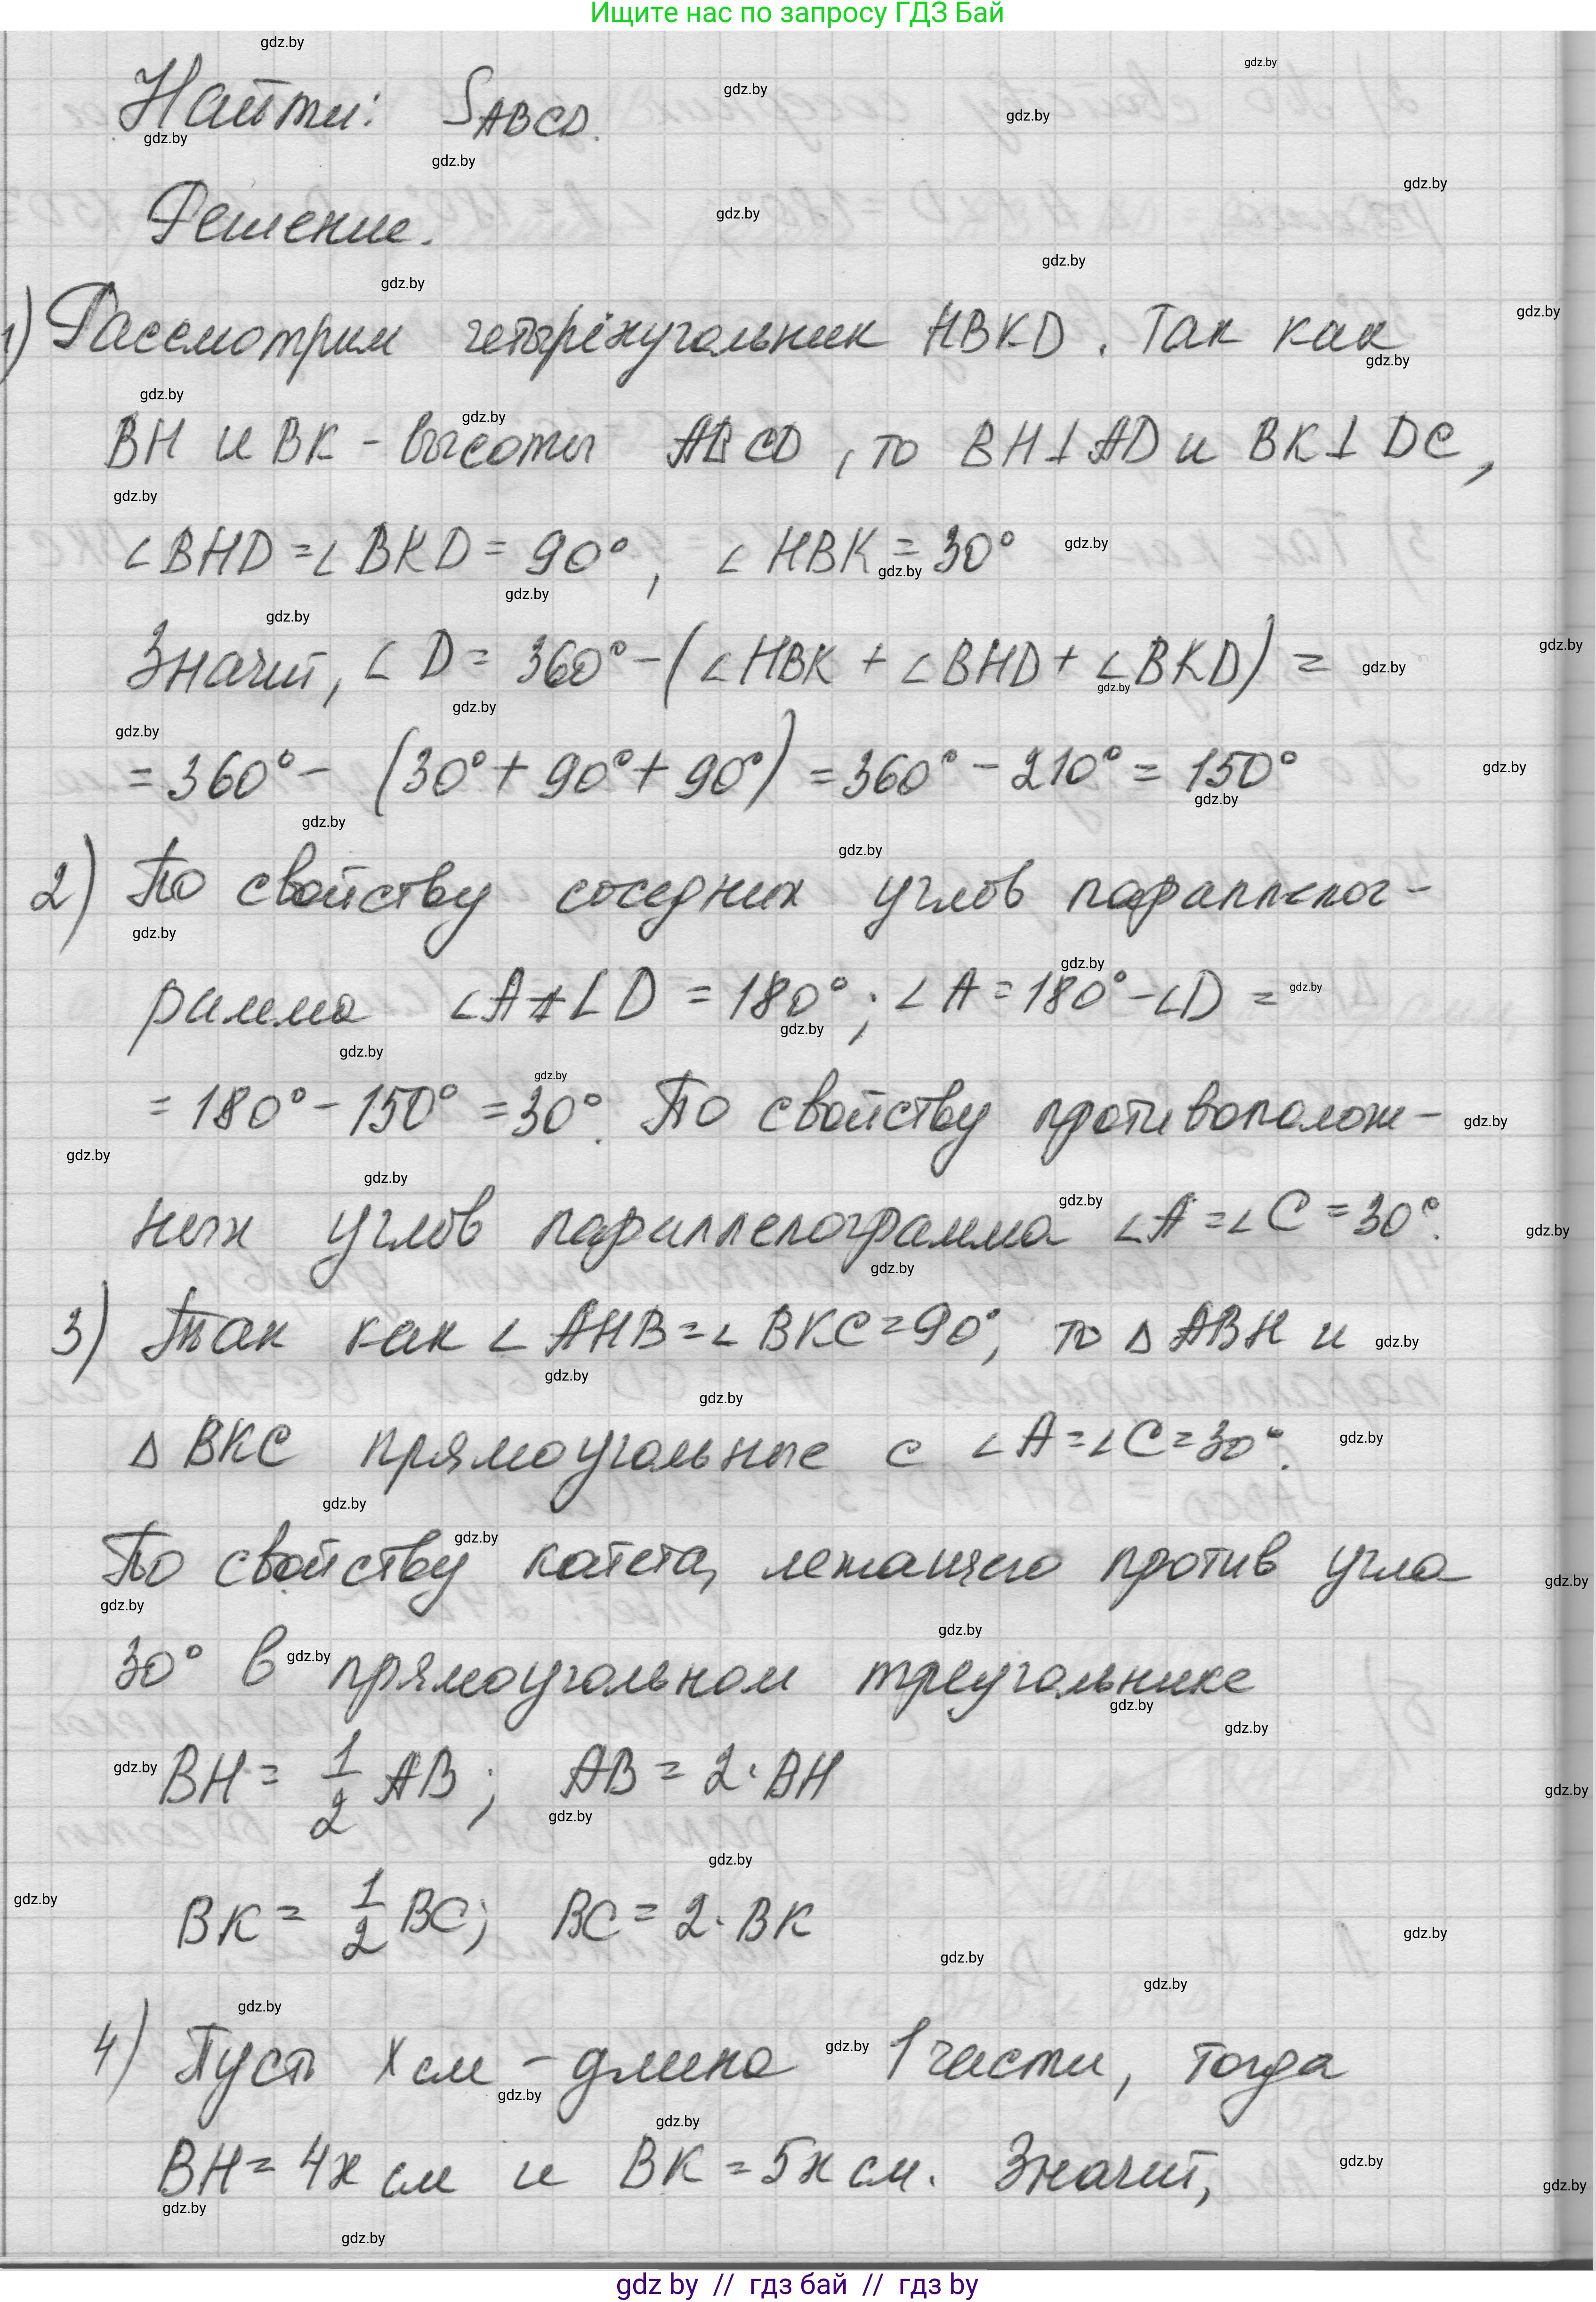 Ищите нас по запросу ГДЗ Бай
Найти: SABCD.
Решение.
1) Рассмотрим четырёхугольник HBKD. Так как
BH и BK - высоты ABCD, то BH⊥AD и BK⊥DC,
∠BHD = ∠BKD = 90°, ∠HBK = 30°
Значит, ∠D = 360° - (∠HBK + ∠BHD + ∠BKD) =
= 360° - (30° + 90° + 90°) = 360° - 210° = 150°
2) По свойству соседних углов параллелог-
рамма ∠A + ∠D = 180°; ∠A = 180° - ∠D =
= 180° - 150° = 30°. По свойству противополож-
ных углов параллелограмма ∠A = ∠C = 30°.
3) Так как ∠AHB = ∠BKC = 90°, то △ABH и
△BKC прямоугольные с ∠A = ∠C = 30°.
По свойству катета, лежащего против угла
30° в прямоугольном треугольнике
BH = 1/2 AB; AB = 2·BH
BK = 1/2 BC; BC = 2·BK
4) Пусть x см - длина 1 части, тогда
BH = 4x см и BK = 5x см. Значит,
gdz by // гдз бай // гдз by